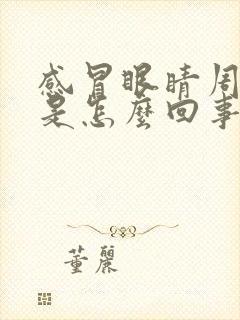 感冒眼睛周
是怎麼回事
董麗